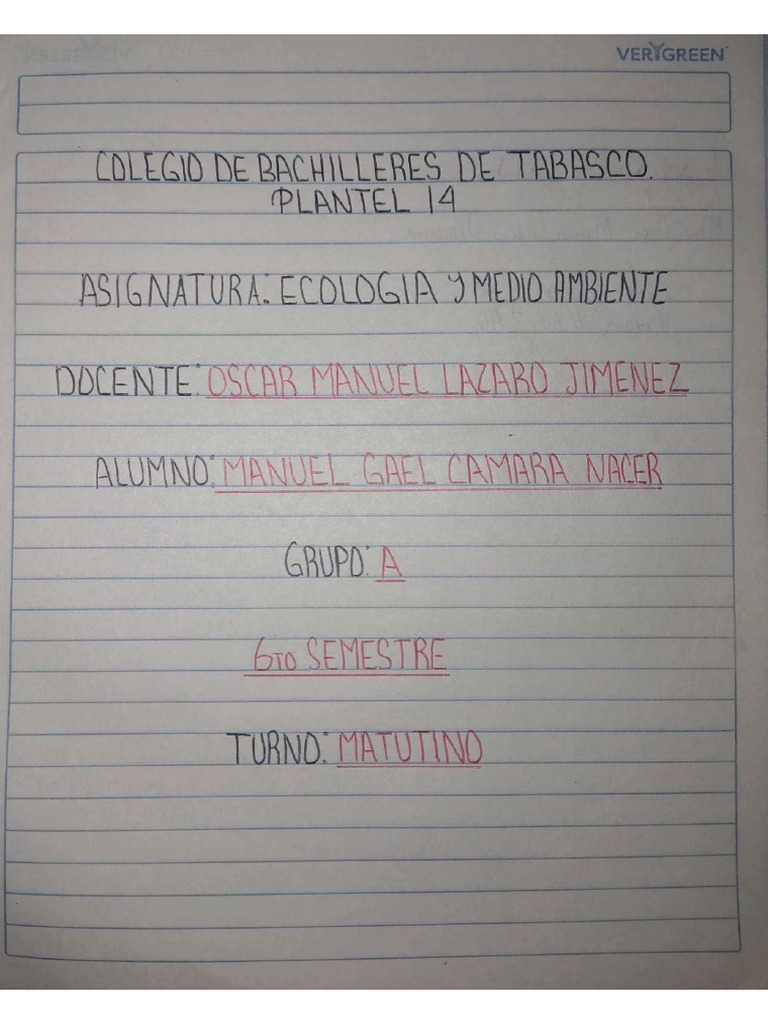 VERYGREEN
COLEGIO DE BACHILLERES DE TABASCO.
PLANTEL 14
ASIGNATURA: ECOLOGIA Y MEDIO AMBIENTE
DOCENTE: OSCAR MANUEL LAZARO JIMENEZ
ALUMNO: MANUEL GAEL CAMARA NACER
GRUPO: A
6TO SEMESTRE
TURNO: MATUTINO